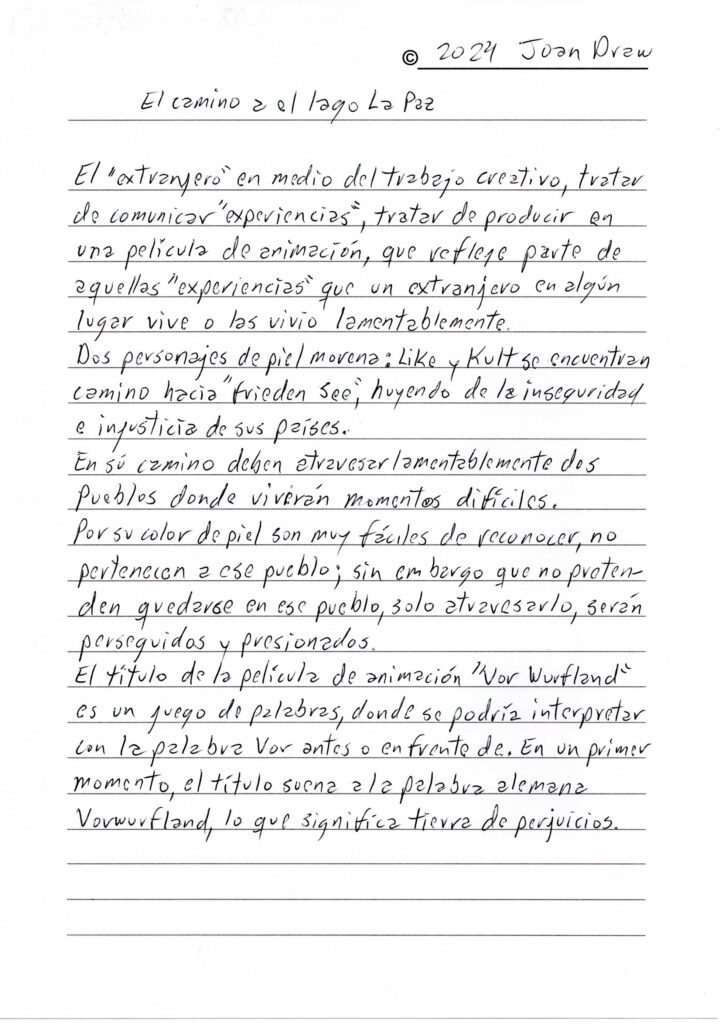 © 2024 Joan Draw
El camino a el lago La Paz
El "extranjero" en medio del trabajo creativo, tratar
de comunicar "experiencias", tratar de producir en
una película de animación, que refleje parte de
aquellas "experiencias" que un extranjero en algún
lugar vive o las vivio lamentablemente.
Dos personajes de piel morena: Like y Kult se encuentran
camino hacia "frieden see", huyendo de la inseguridad
e injusticia de sus países.
En sú camino deben atravesar lamentablemente dos
Pueblos donde vivirán momentos difíciles.
Por su color de piel son muy fáciles de reconocer, no
pertenecen a ese pueblo; sin embargo que no preten-
den quedarse en ese pueblo, solo atravesarlo, serán
perseguidos y presionados.
El título de la película de animación "Vor Wurfland"
es un juego de palabras, donde se podría interpretar
con la palabra Vor antes o enfrente de. En un primer
momento, el título suena a la palabra alemana
Vorwurfland, lo que significa tierra de perjuicios.